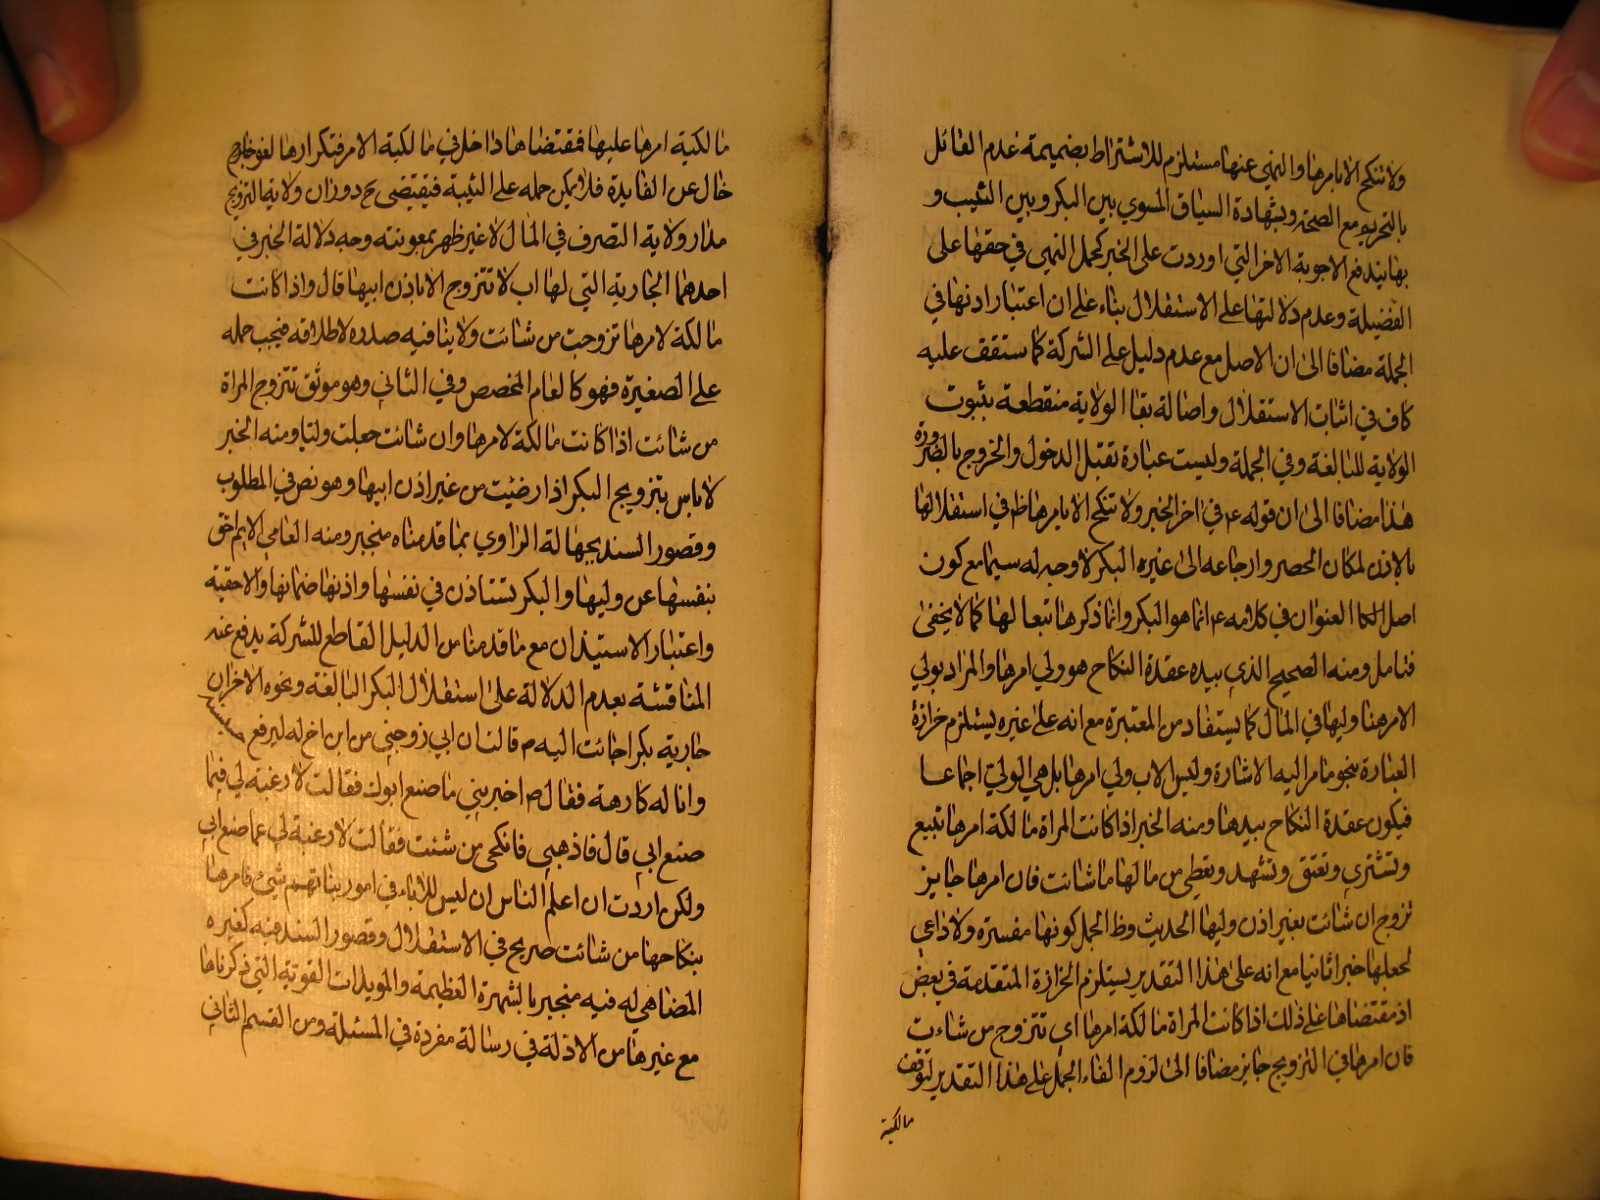 ولا تنكح الا بامرها والنهي عنها مستلزم للاشتراط بضميمة عدم القائل
بالتحريم مع الصحة وبشهادة السياق المسوي بين البكر وبين الثيب و
بها يندفع الاجوبة الاخر التي اوردت على الخبر كحمل النهي في حقها على
الفضيلة وعدم دلالتها على الاستقلال بناء على ان اعتبار اذنها في
الجملة مضافا الى ان الاصل مع عدم دليل على الشركة كما ستقف عليه
كاف في اثبات الاستقلال واصالة بقا الولاية منقطعة بثبوت
الولاية للبالغة وفي الجملة وليست عبارة تقبل الدخول والخروج بالضرورة
هذا مضافا الى ان قوله ع في اخر الخبر ولا تنكح الا بامرها ظ في استقلالها
بالاذن لمكان الحصر وارجاعه الى غيره البكر لا وجه له سيما مع كون
اصل العنوان في كلامه ع انما هو البكر وانما ذكرها تبعا لها كما لا يخفى
فتامل ومنه الصحيح الذي بيده عقدة النكاح هو ولي امرها والمراد بولي
الامر هنا وليها في المال كما يستفاد من المعتبرة مع انه على غيره يستلزم حزازة
العبارة بنحو ما مر اليه الاشارة وليس الاب ولي امرها بل هي الولي اجماعا
فيكون عقدة النكاح بيدها ومنه الخبر اذا كانت المراة مالكة امرها تبيع
وتشتري وتعتق وتشهد وتعطي من مالها ما شائت فان امرها جايز
تزوج ان شائت بغير اذن وليها الحديث وظ الجمل كونها مفسرة ولا داعي
لجعلها خبرا ثانيا مع انه على هذا التقدير يستلزم الحزازة المتقدمة في بعض
اذ مقتضاها على ذلك اذا كانت المراة مالكة امرها اي تتزوج من شاءت
فان امرها في التزويج جايز مضافا الى لزوم الغاء الجمل على هذا التقدير لتوقف
مالكية
مالكية امرها عليها فمقتضاها داخل في مالكية الامر فتكرارها لغو خارج
خال عن الفايدة فلا يمكن حمله على الثيبة فيقتضي ح دوران ولاية التزويج
مدار ولاية التصرف في المال لا غير ظهر بمعونته وجه دلالة الخبر في
احدهما الجارية التي لها اب لا تتزوج الا باذن ابيها قال واذا كانت
مالكة لامرها تزوجت من شائت ولا ينافيه صدره لاطلاقه فيجب حمله
على الصغيرة فهو كالعام المخصص وفي الثاني وهو موثق تتزوج المراة
من شائت اذا كانت مالكة لامرها وان شائت جعلت وليا ومنه الخبر
لا باس بتزويج البكر اذا رضيت من غير اذن ابيها وهو نص في المطلوب
وقصور السند بجهالة الراوي بما قدمناه منجبر ومنه العامي الايم احق
بنفسها عن وليها والبكر تستاذن في نفسها واذنها صماتها والاحقية
واعتبار الاستيذان مع ما قدمنا من الدليل القاطع للشركة يدفع عنه
المناقشة بعدم الدلالة على استقلال البكر البالغة ونحوه الاخر ان
جارية بكرا جائت اليه ص قالت ان ابي زوجني من ابن اخ له ليرفع خسيسته
وانا له كارهة فقال ص اخبريني ما صنع ابوك فقالت لا رغبة لي فيما
صنع ابي قال فاذهبي فانكحي من شئت فقالت لا رغبة لي عما صنع ابي
ولكن اردت ان اعلم الناس ان ليس للاباء في امور بناتهم شيء فامرها
بنكاحها من شائت صريح في الاستقلال وقصور السند فيه كغيره
المضاهي له فيه منجبر بالشهرة العظيمة والمويدات القوية التي ذكرناها
مع غيرها من الادلة في رسالة مفردة في المسئلة ومن القسم الثاني